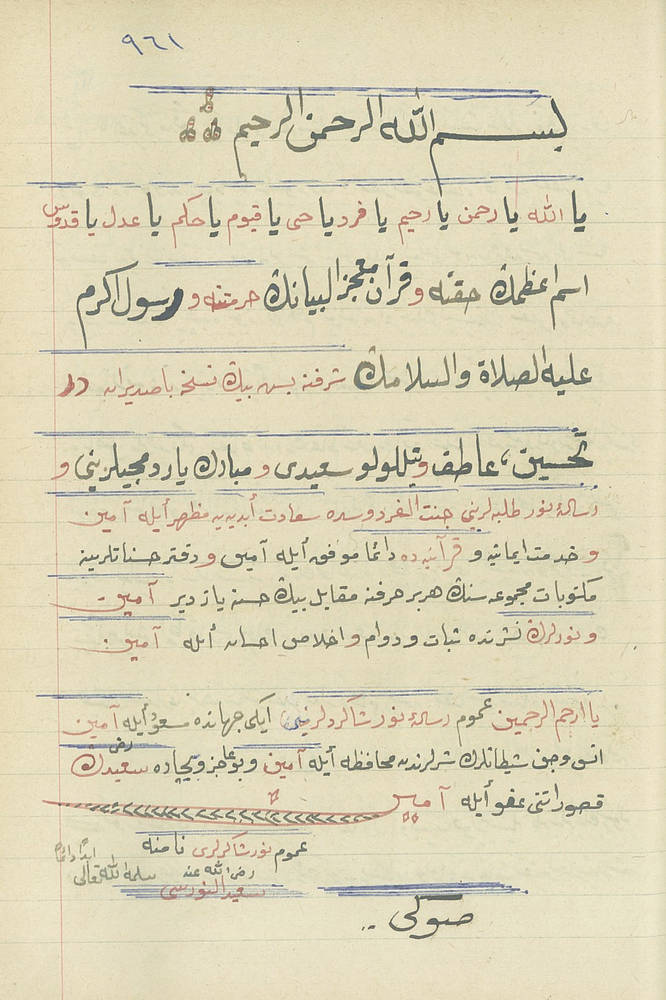 ٩٦١
بسم الله الرحمن الرحيم
يا الله يا رحمن يا رحيم يا فرد يا حي يا قيوم يا حكم يا عدل يا قدوس
اسم اعظمڭ حقنه و قرآن معجز البيانڭ حرمتنه و رسول اكرم
عليه الصلاة والسلامڭ شرفنه بس بيڭ نسخه باصديران
تحسين، عاطف و تللولو سعيدى و مبارك ياردمجيلريني و
رسالۀ نور طلبه لريني جنت الفردوسده سعادت أبديه يه مظهر أيله آمين
و خدمت ايمانيه و قرآنيه ده دائما موفق أيله آمين و دفتر حسناتلرينه
مكتوبات مجموعه سنڭ هربر حرفنه مقابل بيڭ حسنه يازدير آمين
و نورلرڭ نشرنده ثبات و دوام و اخلاص احسان أيله آمين
يا ارحم الراحمين عموم رسالۀ نور شاكردلرينى ايكى جهانده مسعود أيله آمين
انس و جن شيطانلرڭ شرلرندن محافظه أيله آمين و بو عاجز و بيچاره سعيدڭ رض
قصوراتنى عفو أيله آمين
عموم نور شاكرلرى نامنه
ابدًا دائمًا سلمه الله تعالى رضى الله عنه
سعيد النورسى
صوڭى